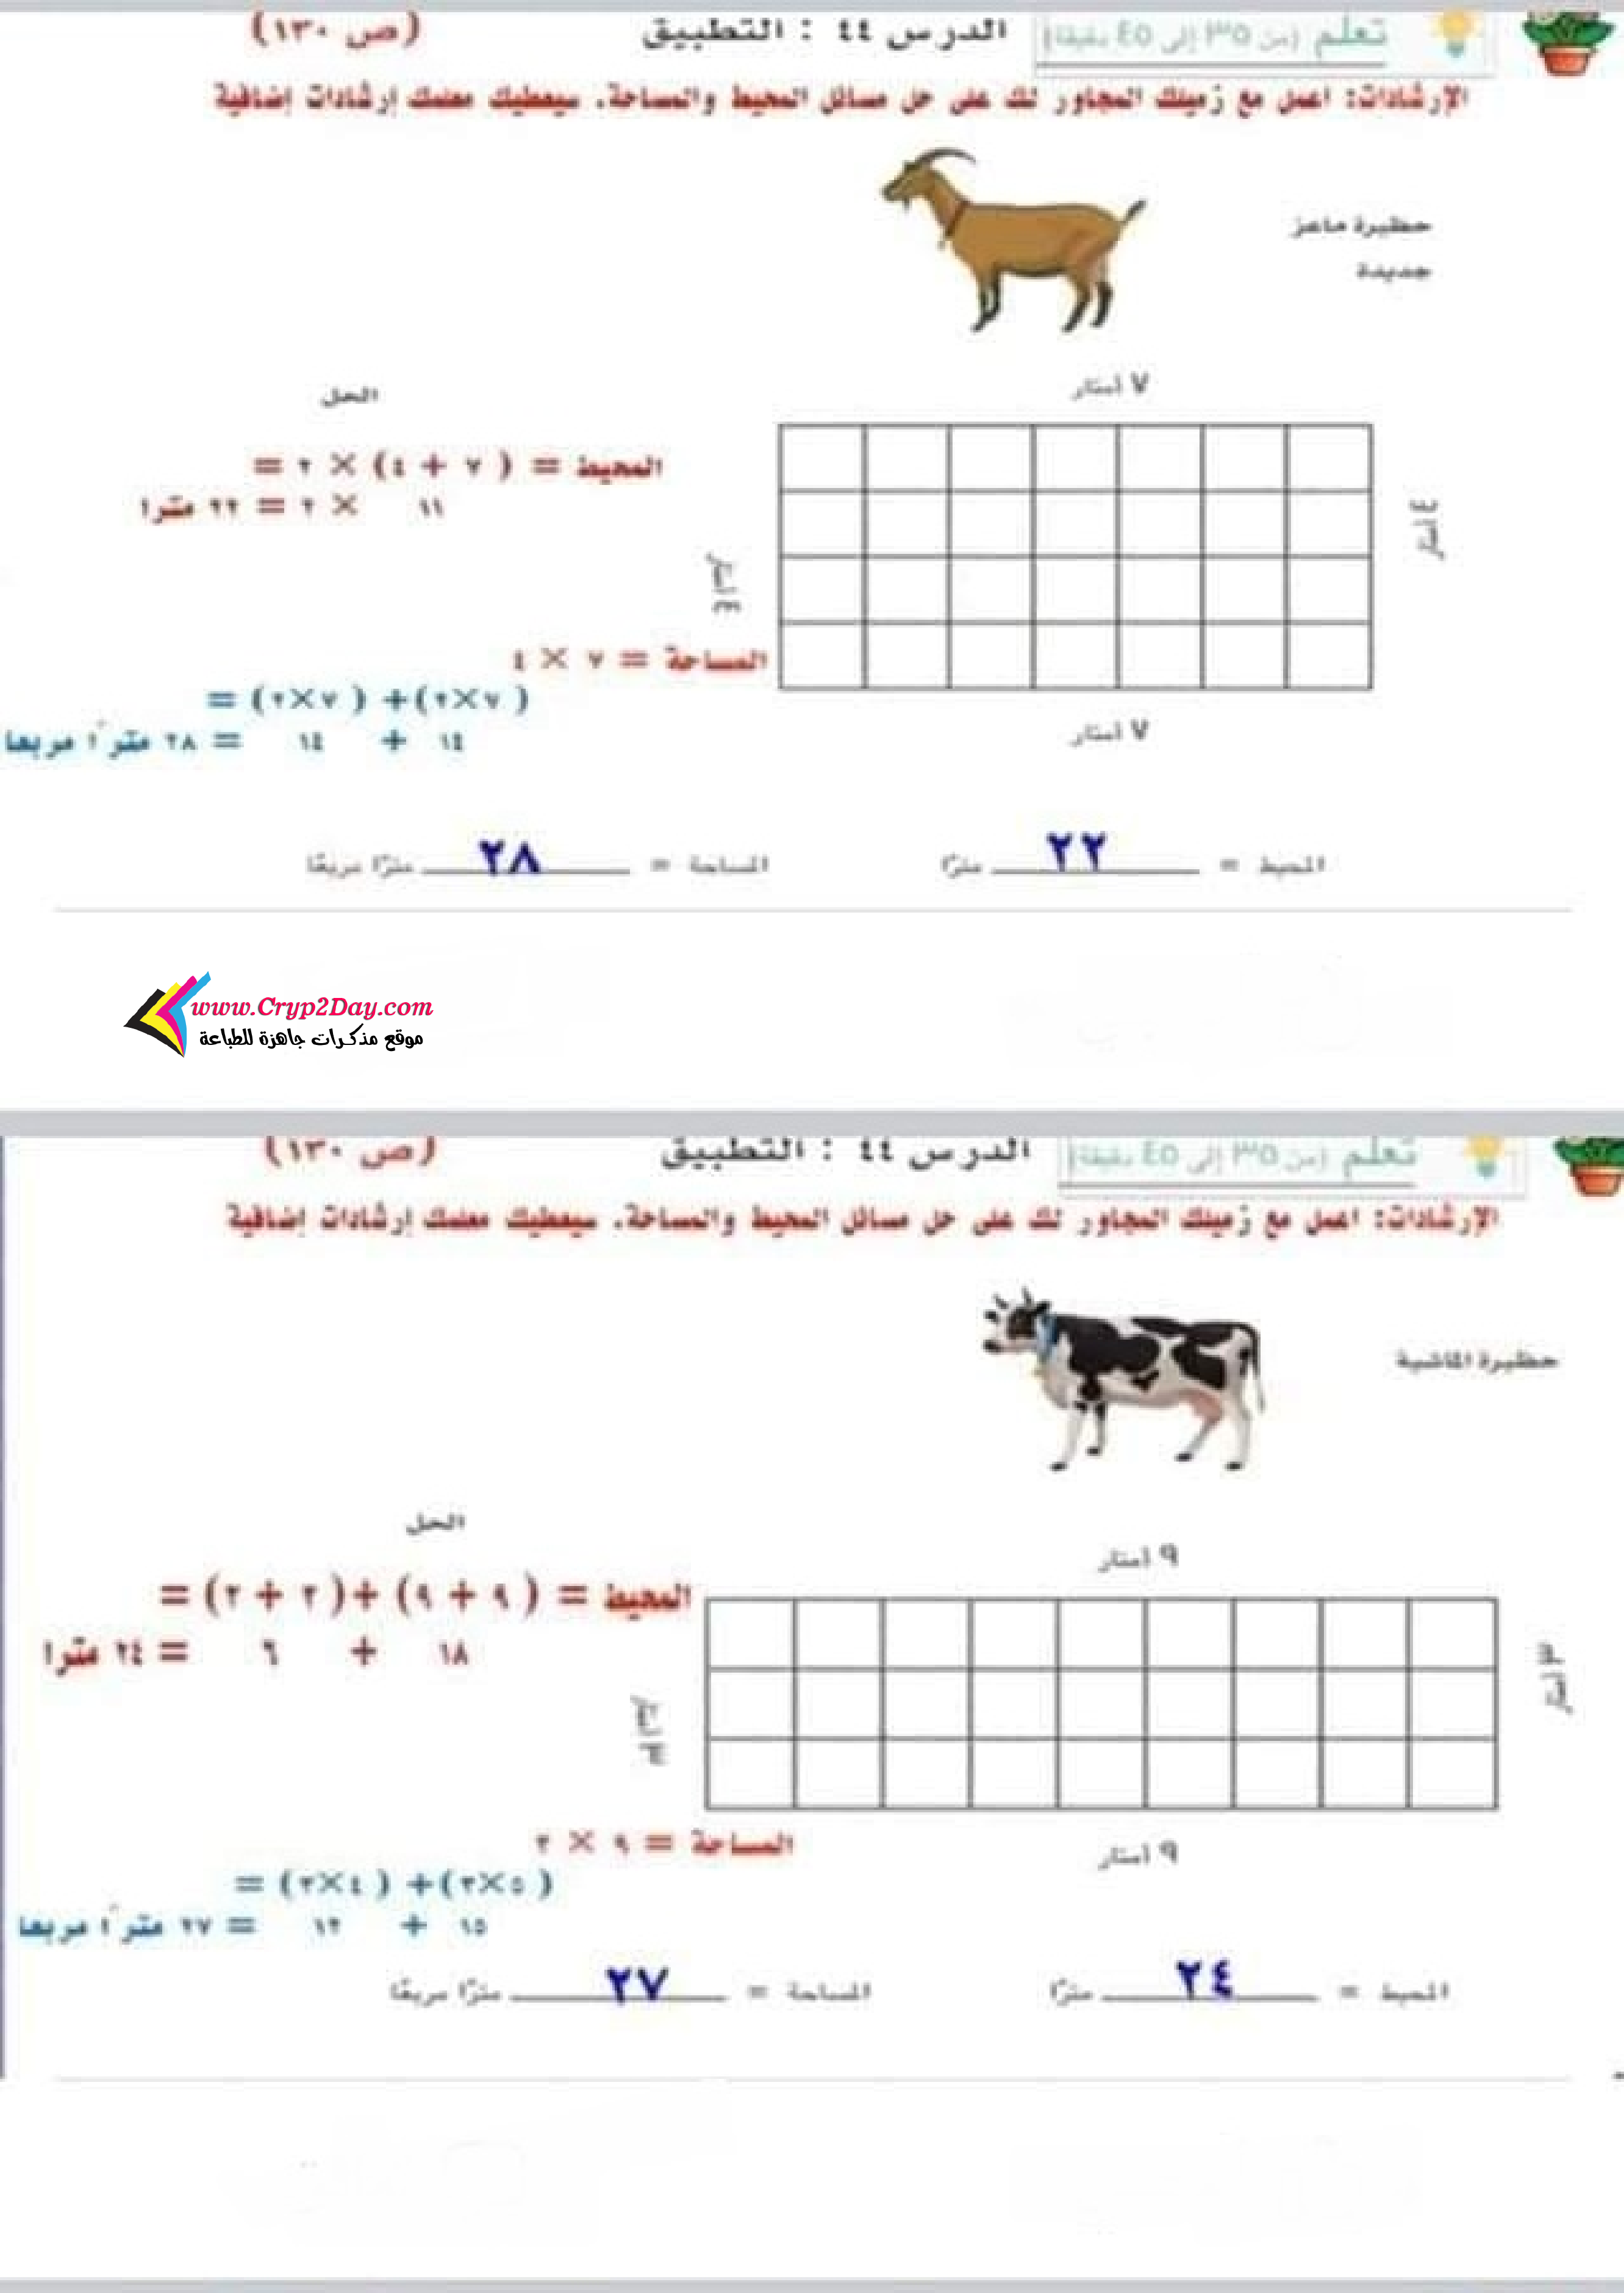 تعلم (من ٣٥ إلى ٤٥ دقيقة) الدرس ٤٤ : التطبيق (ص ١٣٠)
الإرشادات: اعمل مع زميلك المجاور لك على حل مسائل المحيط والمساحة. سيعطيك معلمك إرشادات إضافية
حظيرة ماعز
جديدة
٧ أمتار
الحل
المحيط = ( ٧ + ٤) × ٢ =
١١ × ٢ = ٢٢ مترا
٤ أمتار
٤ أمتار
المساحة = ٧ × ٤
( ٧×٢)+ ( ٧×٢) =
١٤ + ١٤ = ٢٨ مترًا مربعا
٧ أمتار
المحيط = ٢٢ مترًا المساحة = ٢٨ مترًا مربعًا
www.Cryp2Day.com
موقع مذكرات جاهزة للطباعة
تعلم (من ٣٥ إلى ٤٥ دقيقة) الدرس ٤٤ : التطبيق (ص ١٣٠)
الإرشادات: اعمل مع زميلك المجاور لك على حل مسائل المحيط والمساحة. سيعطيك معلمك إرشادات إضافية
حظيرة الماشية
الحل
٩ أمتار
المحيط = ( ٩ + ٩) +( ٣ + ٣) =
١٨ + ٦ = ٢٤ مترا
٣ أمتار
٣ أمتار
المساحة = ٩ × ٣
( ٥×٣)+ ( ٤×٣) =
١٥ + ١٢ = ٢٧ مترًا مربعا
٩ أمتار
المحيط = ٢٤ مترًا المساحة = ٢٧ مترًا مربعًا